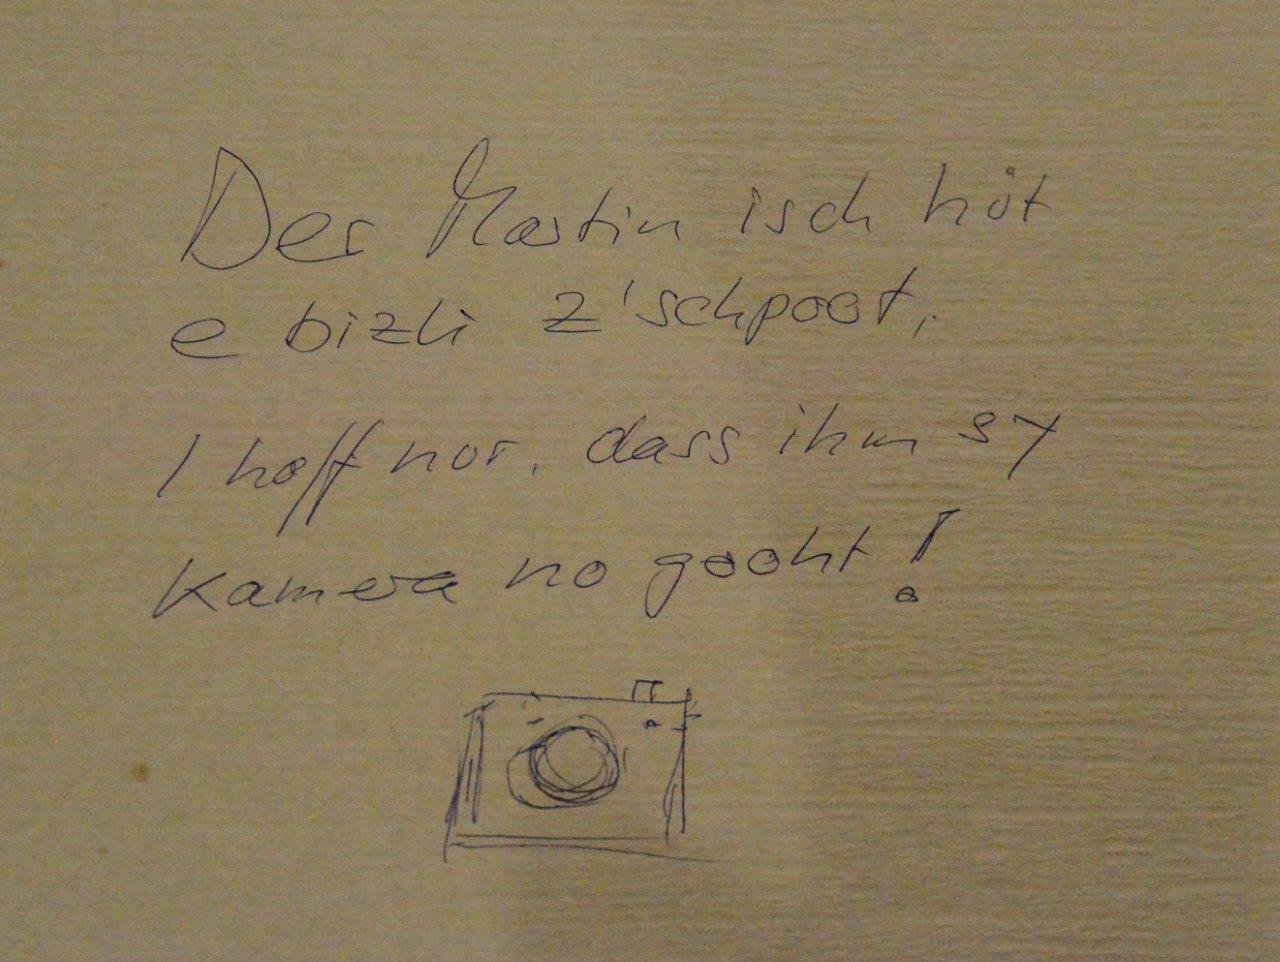 Der Martin isch höt
e bizli z'schpoot.
I hoff nor, dass ihm sy
Kamera no gooht!